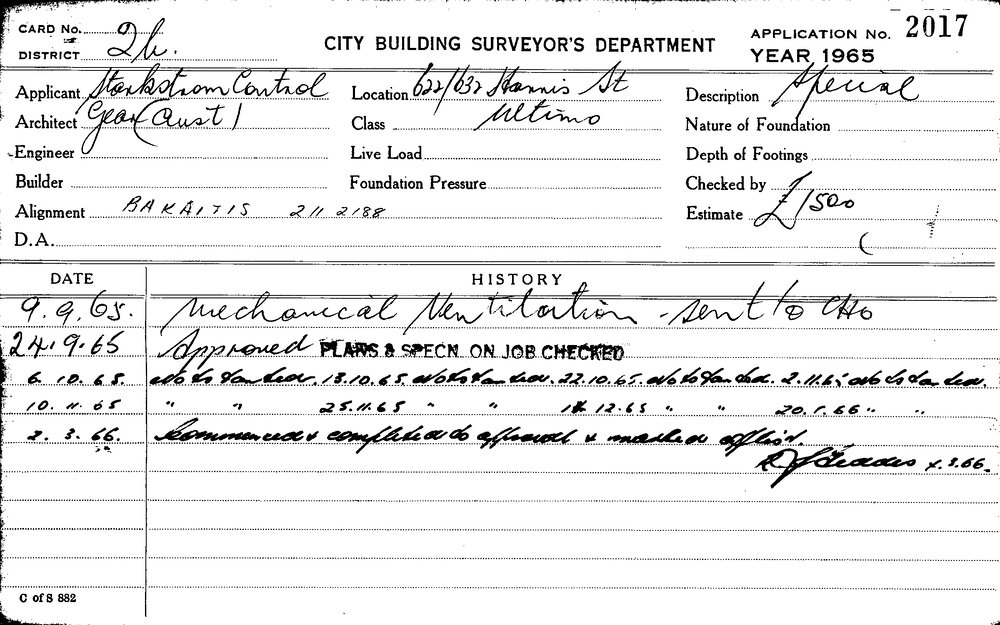 CARD No.
DISTRICT 2b.
CITY BUILDING SURVEYOR'S DEPARTMENT
APPLICATION No. 2017
YEAR 1965
Applicant Starkstrom Control
Location 622/632 Harris St
Description Special
Architect Gear (Aust)
Class Ultimo
Nature of Foundation
Engineer
Live Load
Depth of Footings
Builder
Foundation Pressure
Checked by
Alignment BAKAITIS 211 2188
Estimate £1500
D.A.
DATE HISTORY
9.9.65. Mechanical Ventilation - sent to CHO
24.9.65 Approved PLANS & SPECN. ON JOB CHECKED
6.10.65. Not started. 13.10.65 Not started. 22.10.65. Not started. 2.11.65 Not started.
10.11.65 " " 25.11.65 " " 12.65 " " 20.1.66 " "
2.3.66. Commenced & completed to approval & marked off list.
3.66.
C of S 882